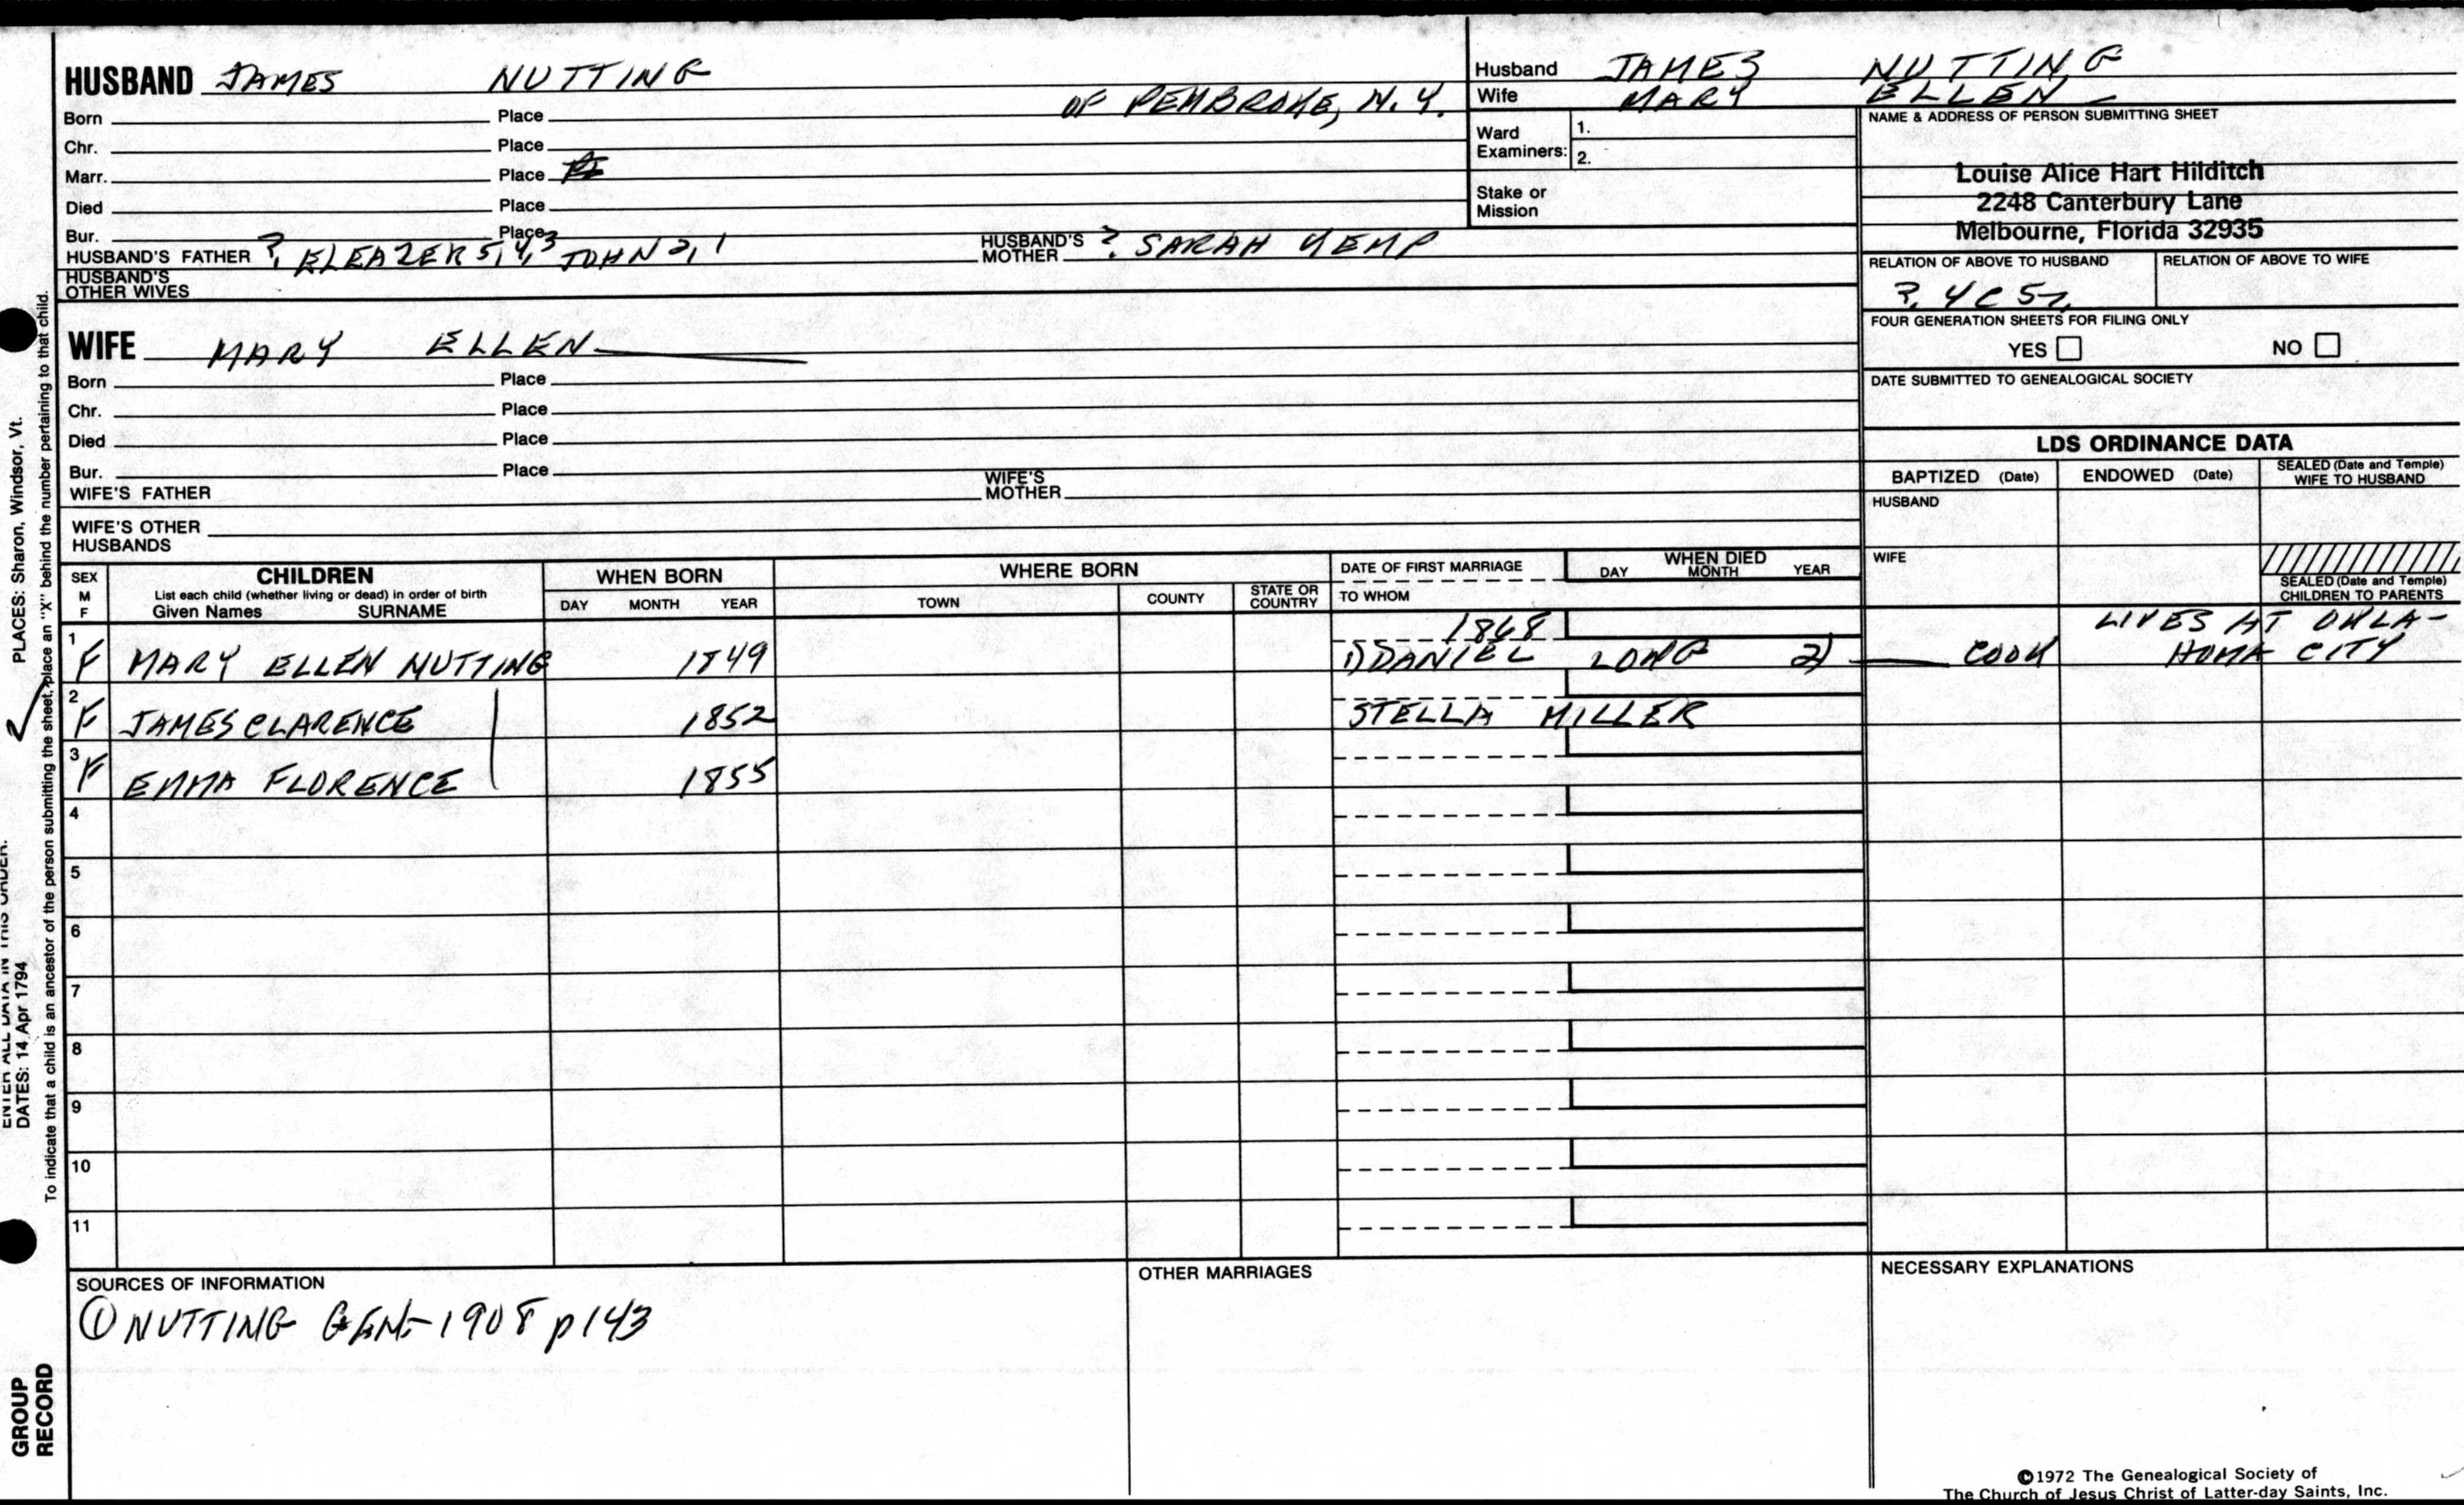 HUSBAND JAMES NUTTING
OF PEMBROKE, N.Y.
Born Place
Chr. Place
Marr. Place
Died Place
Bur. Place
HUSBAND'S FATHER ?, ELEAZER 5,4,3 JOHN 2,1 HUSBAND'S MOTHER ? SARAH KEMP
HUSBAND'S OTHER WIVES
Husband JAMES NUTTING
Wife MARY ELLEN –
Ward Examiners: 1.
2.
Stake or Mission
NAME & ADDRESS OF PERSON SUBMITTING SHEET
Louise Alice Hart Hilditch
2248 Canterbury Lane
Melbourne, Florida 32935
RELATION OF ABOVE TO HUSBAND RELATION OF ABOVE TO WIFE
?, 4C5
FOUR GENERATION SHEETS FOR FILING ONLY
YES NO
DATE SUBMITTED TO GENEALOGICAL SOCIETY
WIFE MARY ELLEN
Born Place
Chr. Place
Died Place
Bur. Place
WIFE'S FATHER WIFE'S MOTHER
WIFE'S OTHER HUSBANDS
LDS ORDINANCE DATA
BAPTIZED (Date) ENDOWED (Date) SEALED (Date and Temple) WIFE TO HUSBAND
HUSBAND
WIFE
SEALED (Date and Temple) CHILDREN TO PARENTS
SEX M F
CHILDREN
List each child (whether living or dead) in order of birth
Given Names SURNAME
WHEN BORN
DAY MONTH YEAR
WHERE BORN
TOWN COUNTY STATE OR COUNTRY
DATE OF FIRST MARRIAGE
TO WHOM
WHEN DIED
DAY MONTH YEAR
1868 LIVES AT OKLA-
1 F MARY ELLEN NUTTING 1849 1) DANIEL LONG 2) COOK HOMA CITY
2 F JAMES CLARENCE 1852 STELLA MILLER
3 F EMMA FLORENCE 1855
4
5
6
7
8
9
10
11
SOURCES OF INFORMATION
① NUTTING GEN–1908 p143
OTHER MARRIAGES
NECESSARY EXPLANATIONS
©1972 The Genealogical Society of
The Church of Jesus Christ of Latter-day Saints, Inc.
PLACES: Sharon, Windsor, Vt.
To indicate that a child is an ancestor of the person submitting the sheet, place an "X" behind the number pertaining to that child.
ENTER ALL DATA IN THIS ORDER:
DATES: 14 Apr 1794
GROUP
RECORD